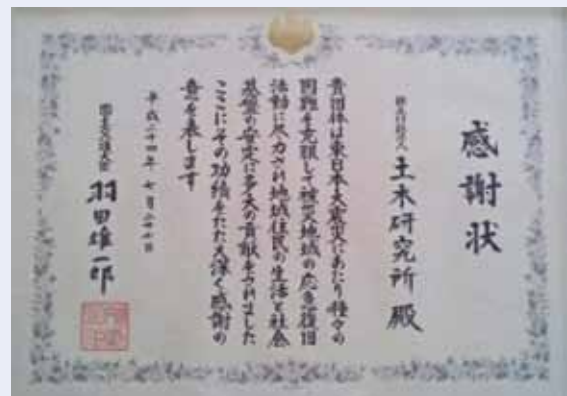 感謝状
独立行政法人 土木研究所 殿
貴団体は東日本大震災にあたり種々の
困難を克服して被災地域の応急復旧
活動に尽力され地域住民の生活と社会
基盤の安定に多大の貢献をされました
ここにその功績をたたえ深く感謝の
意を表します
平成二十四年 七月二十
国土交通大臣 羽田雄一郎